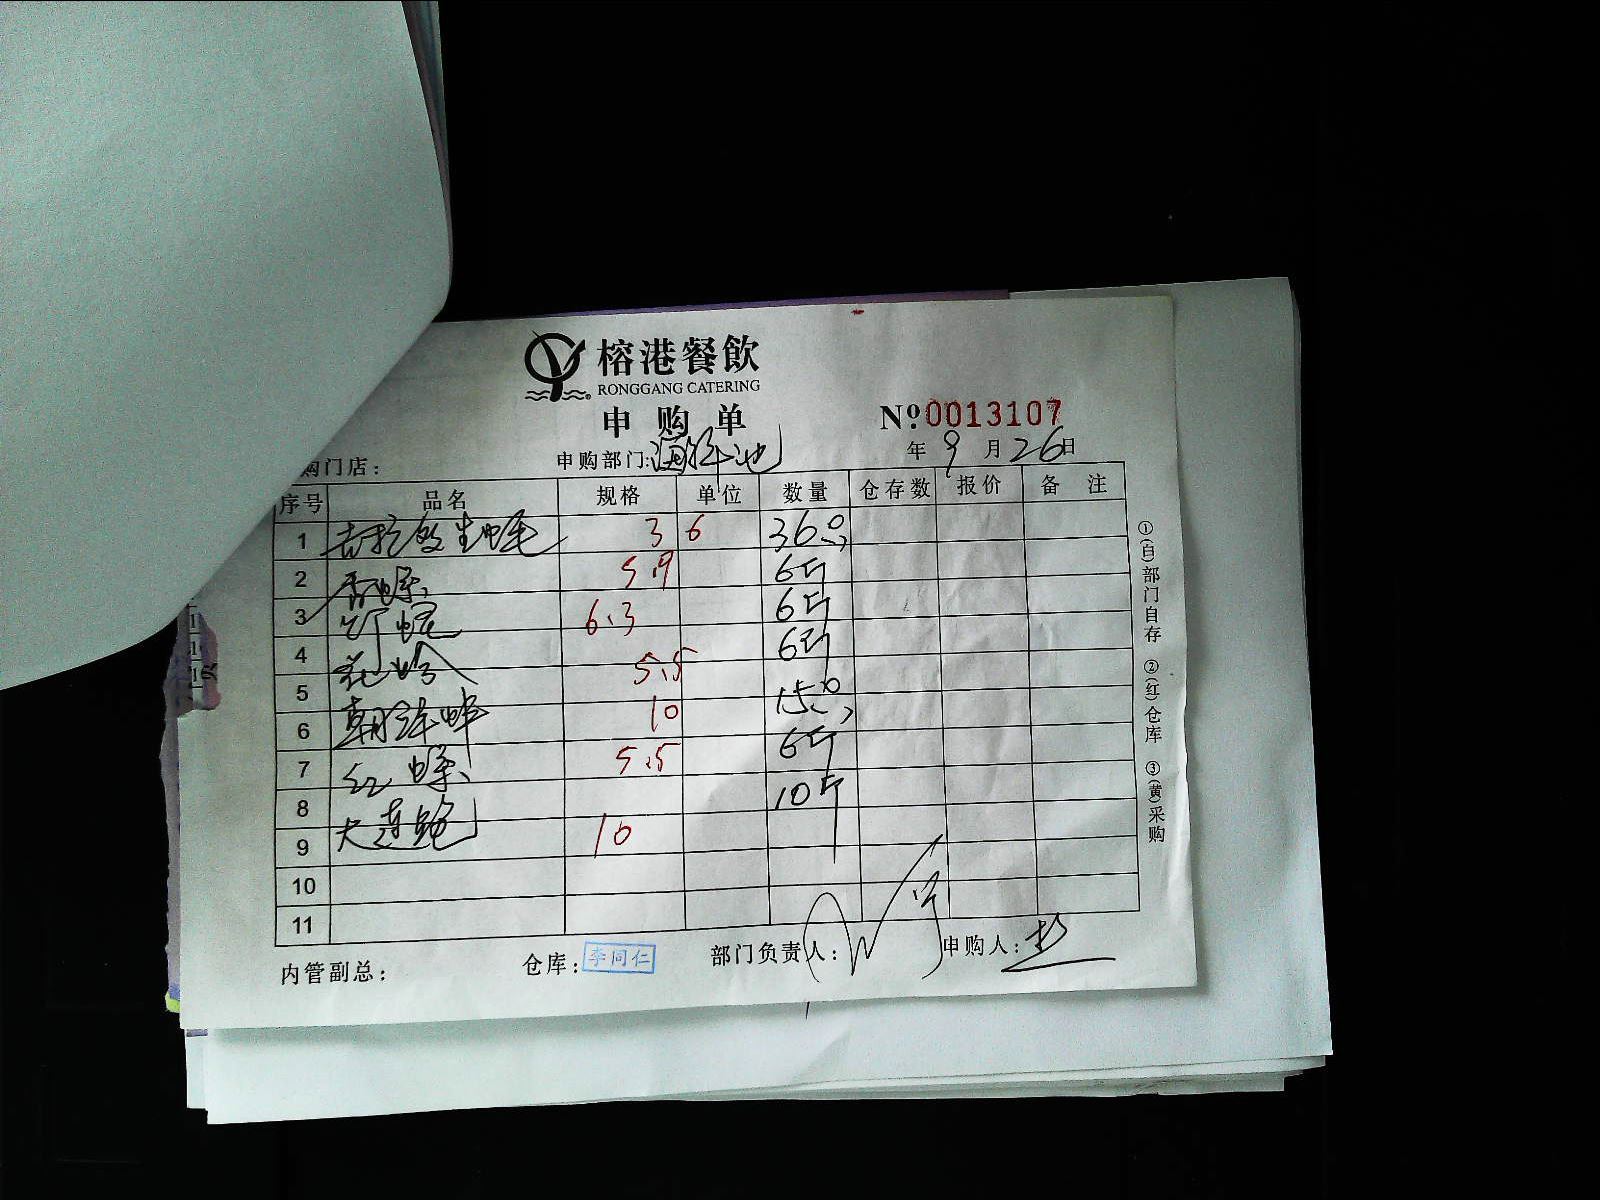 榕港餐飲
RONGGANG CATERING
申购单
№:0013107
购门店: 申购部门:海鲜池 年 9 月 26 日
序号 品名 规格 单位 数量 仓存数 报价 备注
1 吉拉多生蚝 36 36只
2 香螺 5.9 6斤
3 6.3 6斤
4 花蛤 5.5 6斤
5 15只
6 10
7 红螺 5.5 6斤
8 大连鲍 10斤
9 10
10
11
内管副总: 仓库:李同仁 部门负责人: 申购人:
①(白)部门自存 ②(红)仓库 ③(黄)采购